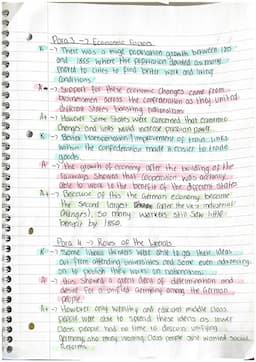 Para 3 → Economic Factors
K → There was a huge population growth between 120
and 1865 where the population doubled as many
moved to cities to find better work and living
conditions.
A → Support for these economic changes came from
businessmen across the confederation as they united
different states boosting nationalism
A+ → However Some States were concerned that economic
changes and links would increase power.
K → Better transportation / improvement of train links
within the confederation made it easier to trade
goods.
A → The growth of economy after the building of the
railways showed that cooperation was actually
able to work to the benefit of the different states
A+ → Because of this the German economy became
the second largest (after the industrial
changes), so many workers still saw little
benefit by 1850.
Para 4 → Roles of the Liberals
K → Some liberal thinkers were able to get their ideas
out from attending universities and some even
on to publish they works on nationalism.
A → this showed a great deal of determination and
desire for a unified Germany among the German
people.
A+ → However only wealthy and educated middle class
people were able to spend these ideas as lower
class people had no time to discuss unifying
Germany and many working class people also wanted social
reforms.